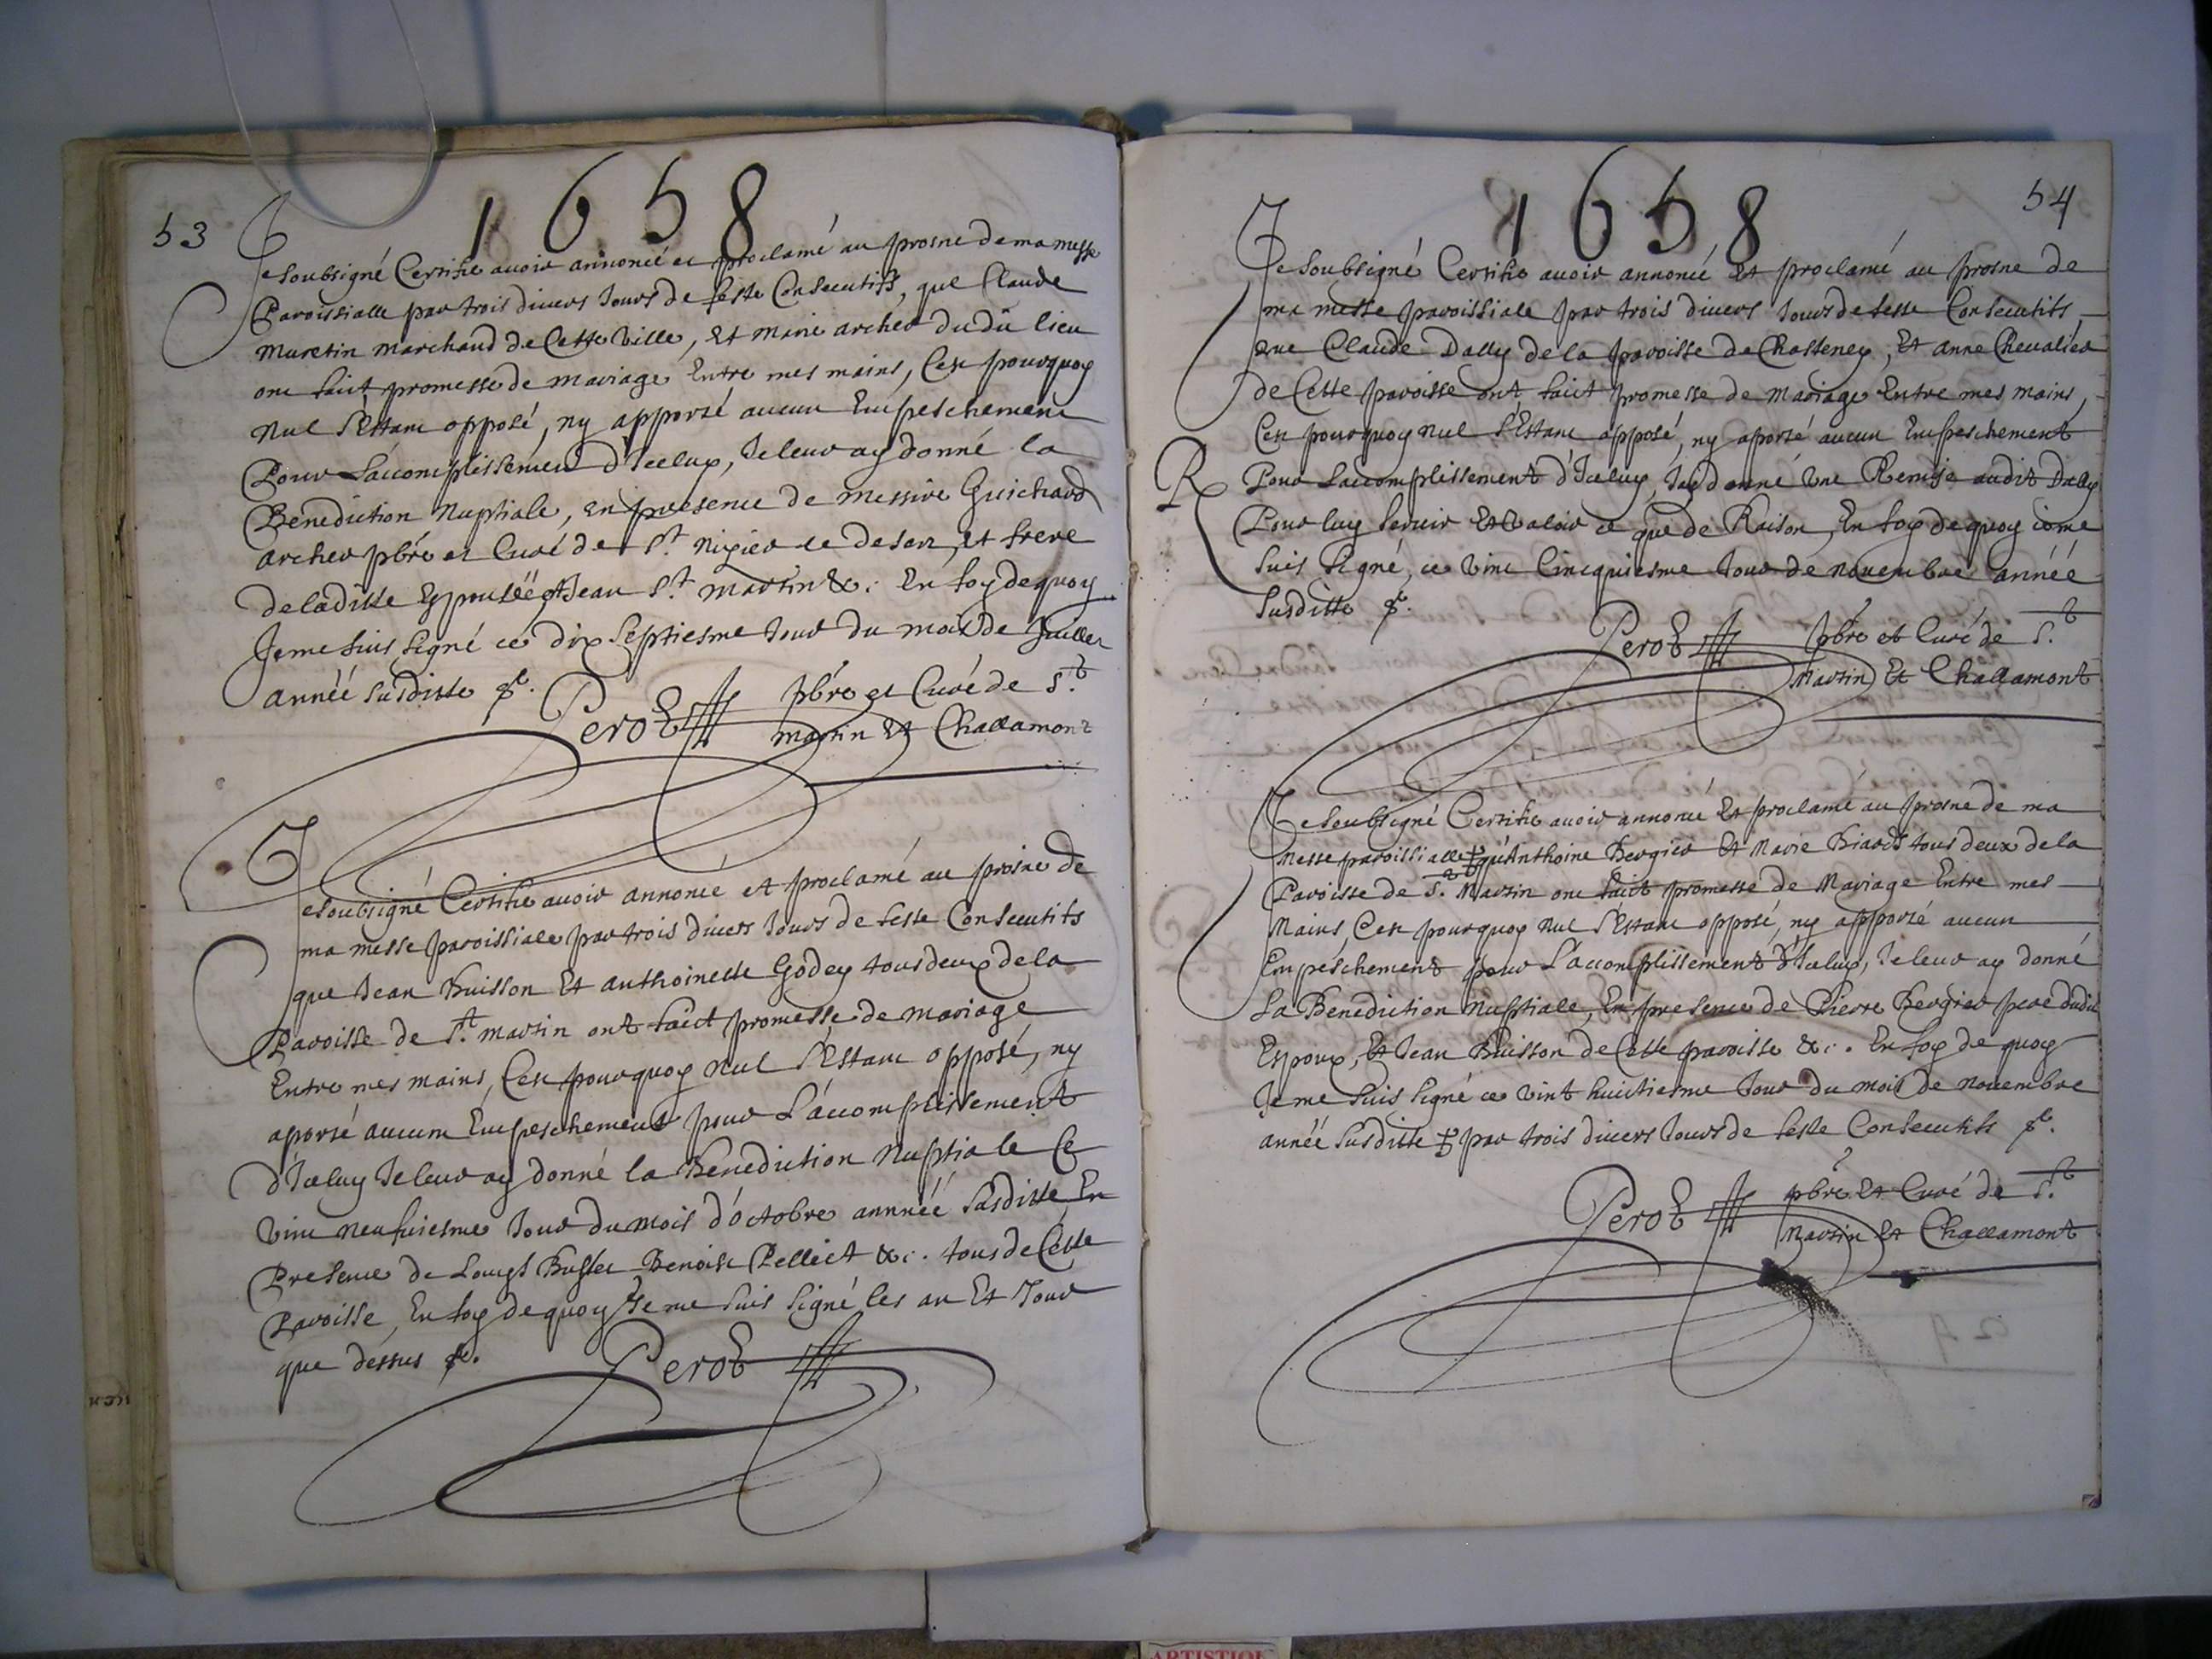 53
1658
Je soubsigné Certifie avoir annoncé et proclamé au prosne de ma messe
Paroissialle par trois divers Jours de feste Consecutifs, que Claude
Muretin marchand de Cette Ville, et Marie archer dudit lieu
ont faict promesse de mariage Entre mes mains, C'est pourquoy
Nul s'Estant opposé, ny apporté aucun Empeschement
Pour L'accomplissement d'Iceluy, Je leur ay donné la
Benediction Nuptiale, en presence de messire Guichard
archer pbre et Curé de St. Nizier le desert, et frere
de laditte Epouséé et Jean St. Martin &c. En foy de quoy
Je me suis signé ce dix septiesme Jour du mois de Juillet
année susditte &c.
Perot pbre et Curé de St.
Martin Et Challamont
Je soubsigné Certifie avoir annoncé et proclamé au prosne de
ma messe paroissiale par trois divers Jours de feste Consecutifs
que Jean Buisson Et anthoinette Godey tous deux de la
Paroisse de St. Martin ont faict promesse de mariage
Entre mes mains, C'est pourquoy Nul s'Estant opposé, ny
aporté aucun Empeschement pour L'accomplissement
d'Iceluy Je leur ay donné la Benediction Nuptiale Ce
vint neufviesme Jour du mois d'octobre annéé susditte, En
Presence de Louys Benoist Pelliet &c. tous de Cette
Paroisse, En foy de quoy Je me suis signé les an Et Jour
que dessus &c.
Perot
54
1658
Je soubsigné Certifie avoir annoncé Et proclamé au prosne de
ma messe paroissiale par trois divers Jours de feste Consecutifs
que Claude Dally de la paroisse de Chasteney, Et anne Chevalier
de Cette paroisse ont faict promesse de Mariage Entre mes mains,
C'est pourquoy nul s'Estant opposé, ny aporté aucun Empeschement
R
Pour L'accomplissement d'Iceluy, J'ay donné Une Remise audit Dally
Pour luy servir Et Valoir ce que de Raison, En foy de quoy ie me
suis signé, ce vint Cincquiesme Jour de novembre annéé
susditte &c.
Perot pbre et Curé de St.
Martin Et Challamont
Je soubsigné Certifie avoir annoncé Et proclamé au prosne de ma
Messe paroissialle qu'Anthoine Bergier Et Marie Biard tous deux de la
Paroisse de St. Martin ont faict promesse de Mariage Entre mes
Mains, C'est pourquoy Nul s'Estant opposé, ny apporté aucun
Empéschement pour L'accomplissement d'Iceluy, Je leur ay donné
La Benediction Nuptiale, En presence de Pierre Bergier pere dudit
Espoux, Et Jean Buisson de Cette paroisse &c. En foy de quoy
Je me suis signé ce vint huictiesme Jour du mois de novembre
annéé susditte par trois divers Jours de feste Consecutifs &c.
Perot pbre Et Curé de St.
Martin Et Challamont